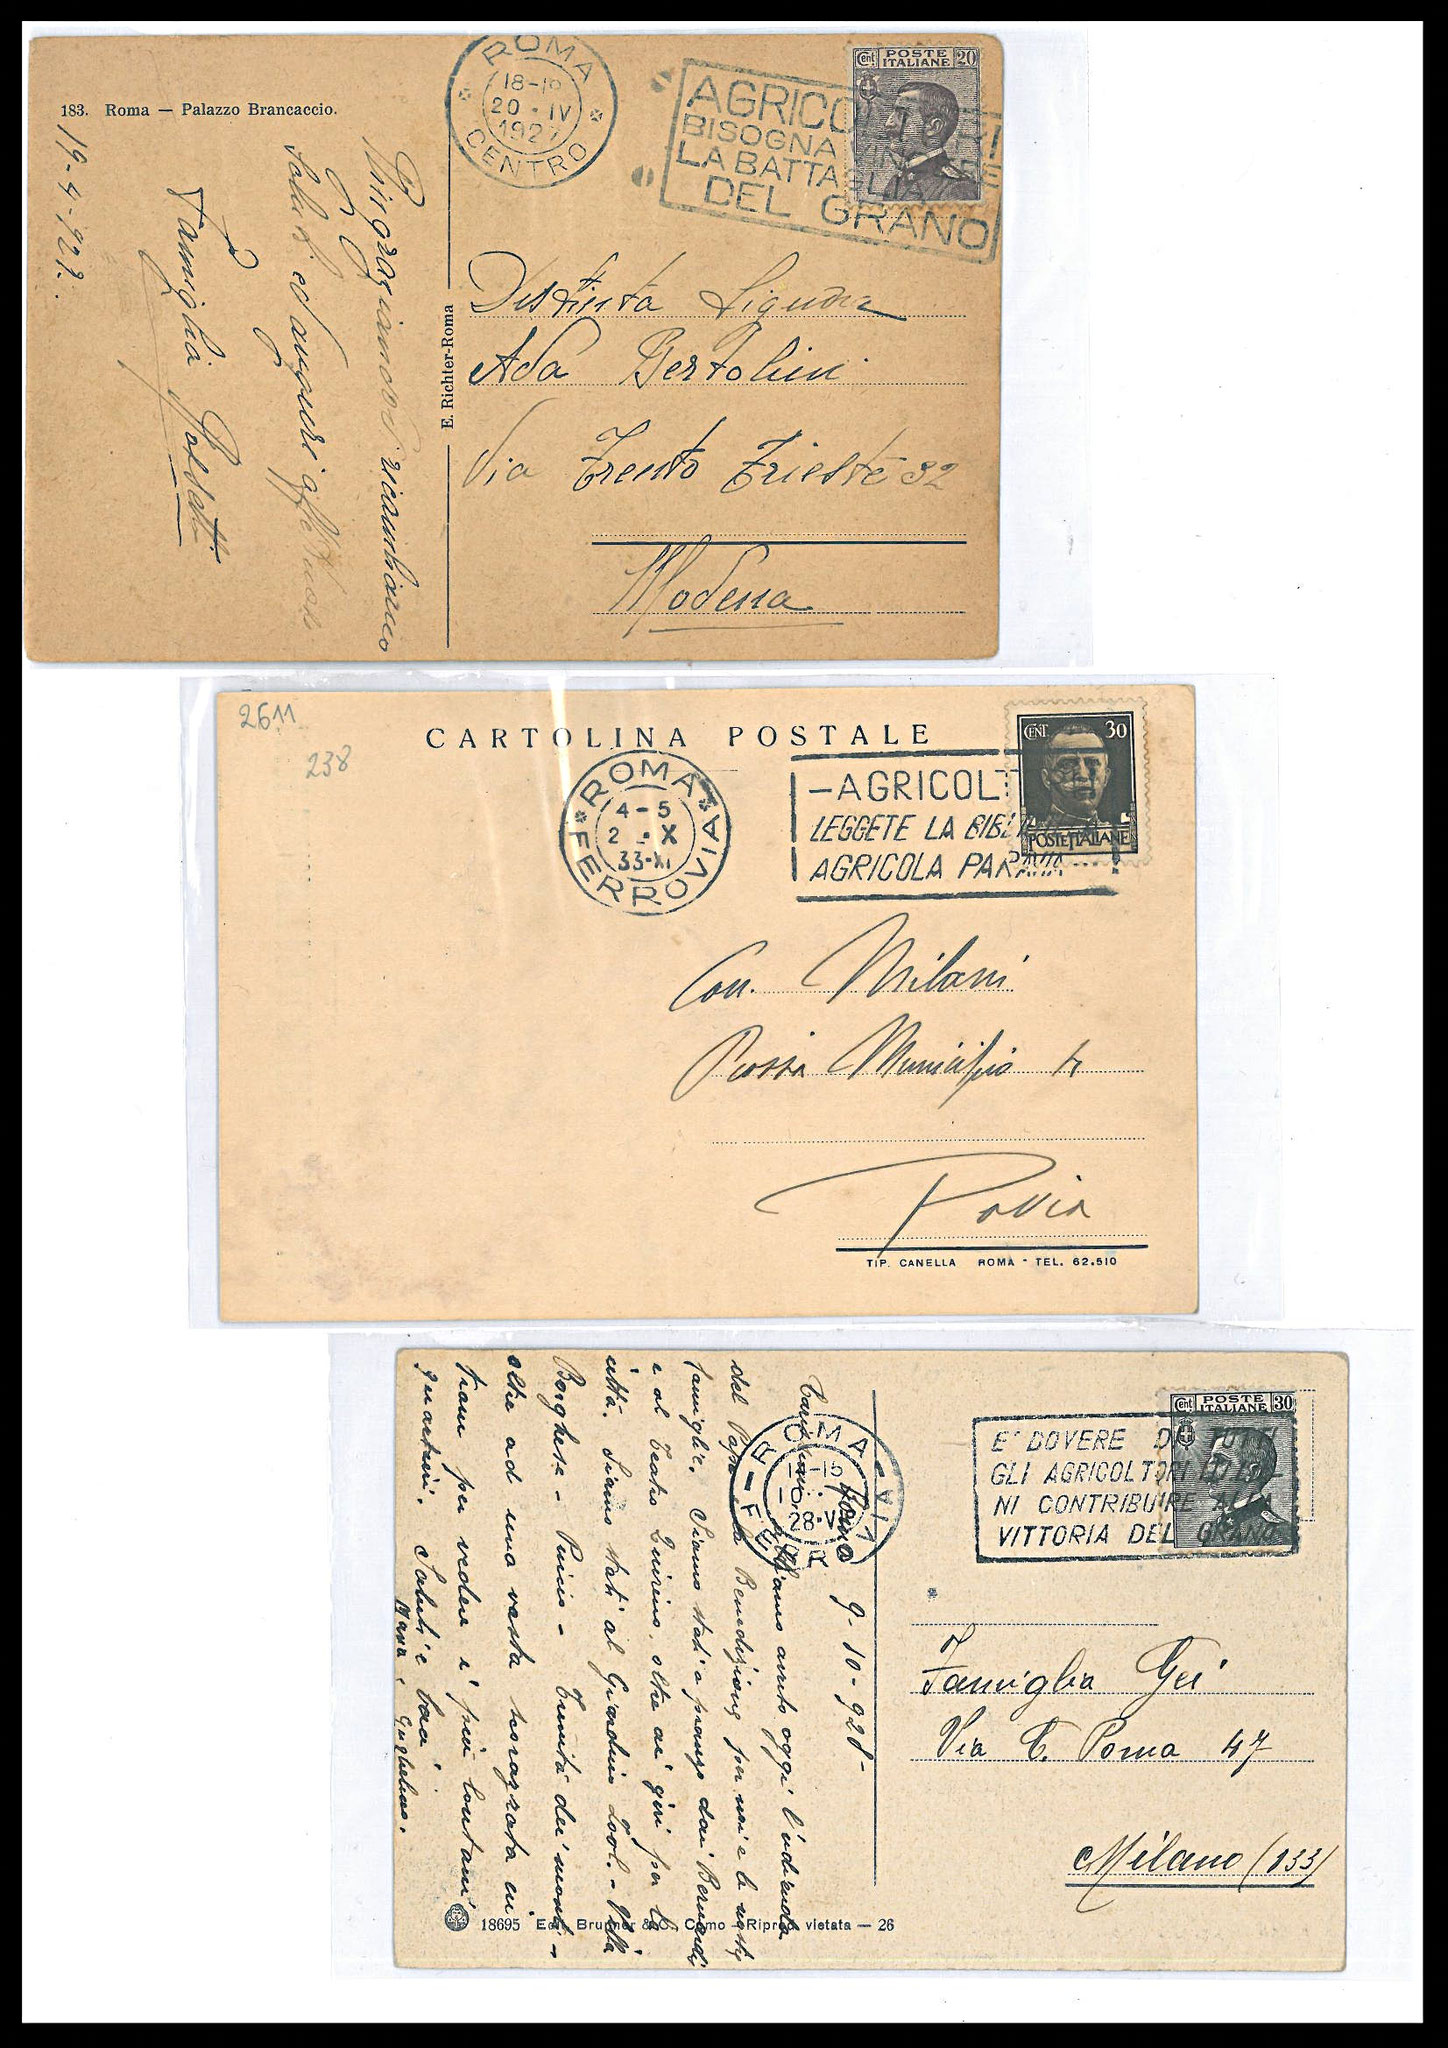 183. Roma — Palazzo Brancaccio.
ROMA
18-19
20·IV
1927
CENTRO
AGRICOLTORI
BISOGNA VINCERE
LA BATTAGLIA
DEL GRANO
Cent POSTE ITALIANE 20
19-4-927.
Ringraziamo e ricambiamo
saluti ed auguri affettuosi
Famiglia Rossatti
E. Richter-Roma
Distinta Signora
Ada Bertolini
Via Trento Trieste 32
Modena
2611
238
CARTOLINA POSTALE
ROMA
FERROVIA
4-5
2 · X
33-XI
— AGRICOLTORI
LEGGETE LA BIBLIOTECA
AGRICOLA PARAVIA
CENT. 30
POSTE ITALIANE
Milani
Piazza Municipio 4
Pavia
TIP. CANELLA ROMA - TEL. 62.510
ROMA
FERROVIA
14-15
10
28·VI
E' DOVERE DI TUTTI
GLI AGRICOLTORI ITALIA-
NI CONTRIBUIRE ALLA
VITTORIA DEL GRANO
Cent POSTE ITALIANE 30
Roma 9-10-928-
Carissimi, abbiamo avuto oggi l'udienza
del Papa e la Benedizione per noi e le nostre
famiglie. Siamo stati a pranzo dai Bernardi
e al Teatro Quirino, oltre ai giri per la
città. Siamo stati al Giardino Zool. - Villa
Borghese - Pincio - Trinità dei monti -
oltre ad una vasta scorazzata in
tram per vedere i più lontani
quartieri. Saluti e baci
Maria, Guglielmo.
Famiglia Gei
Via C. Poma 47
Milano (133)
18695 Ed. Brunner & C. Como - Riprod. vietata — 26